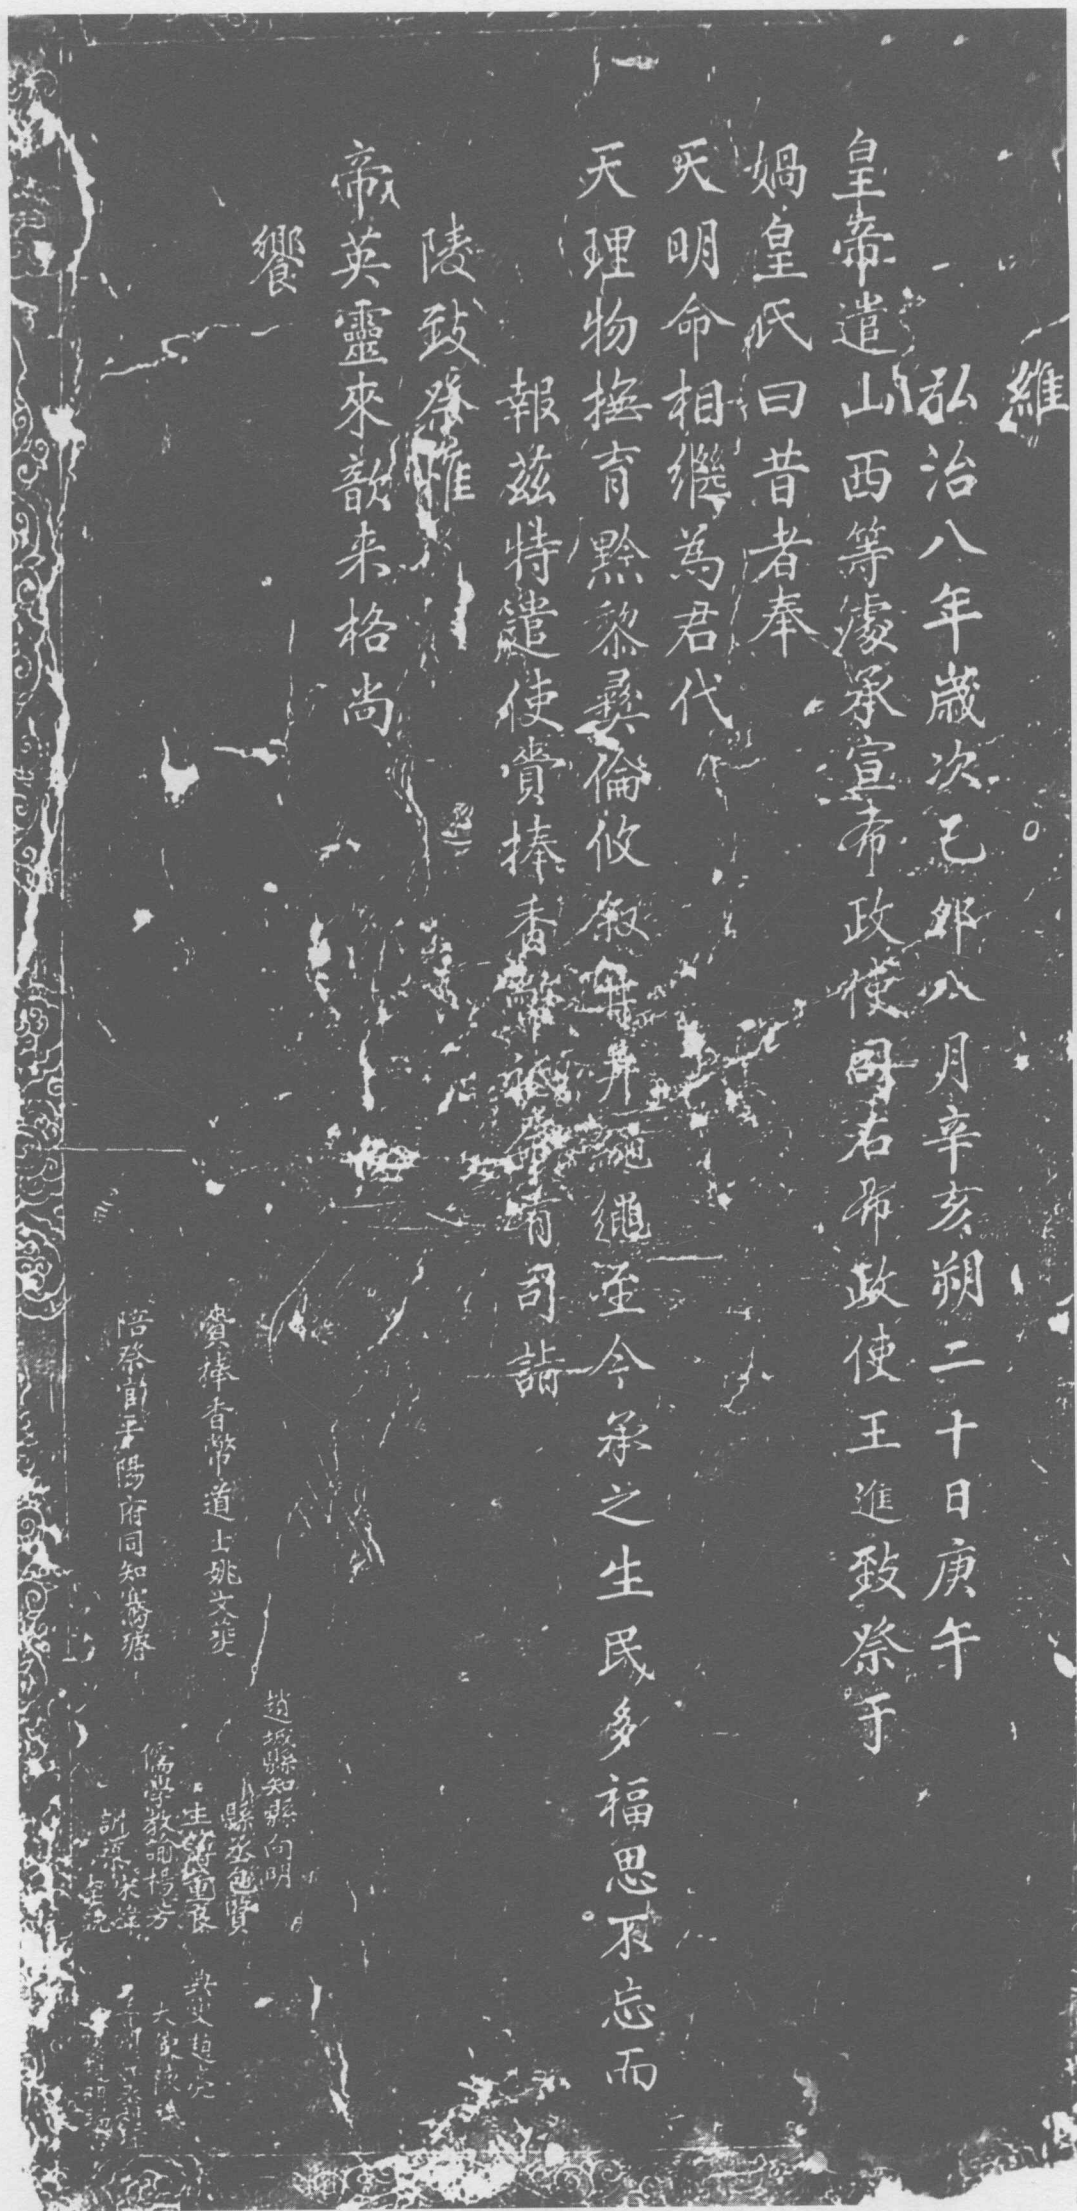 維
弘治八年歲次乙卯八月辛亥朔二十日庚午
皇帝遣山西等處承宣布政使司右布政使王進致祭于
媧皇氏曰昔者奉
天明命相繼為君代
天理物撫育黔黎彝倫攸敘井井繩繩至今承之生民多福思不忘而
報茲特遣使賫捧香幣祗命有司詣
陵致祭惟
帝英靈來歆来格尚
饗
賫捧香幣道士姚文
陪祭官平陽府同知
趙城縣知縣向明
縣丞包賢
主簿董良
儒學教諭楊芳
訓導
典史趙亮